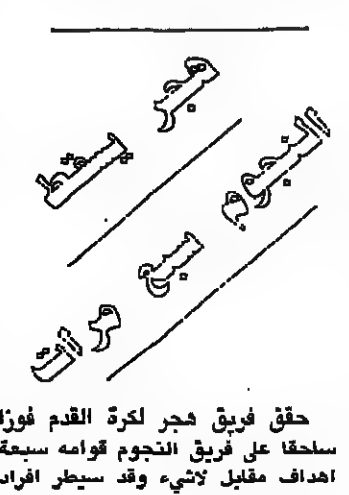 هجر يسقط
النجوم سبع
مرات
حقق فريق هجر لكرة القدم فوزا
ساحقا على فريق النجوم قوامه سبعة
اهداف مقابل لاشيء وقد سيطر افراد